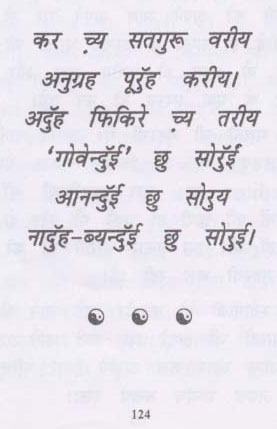 कर च्य सतगुरू वरीय
अनुग्रह पूरुॅह करीय।
अदुॅह फिकिरे च्य तरीय
‘गोवेन्दुॅई’ छु सोरुॅई
आनन्दुॅई छु सोरुय
नादुॅह-ब्यन्दुॅई छु सोरुई।
124